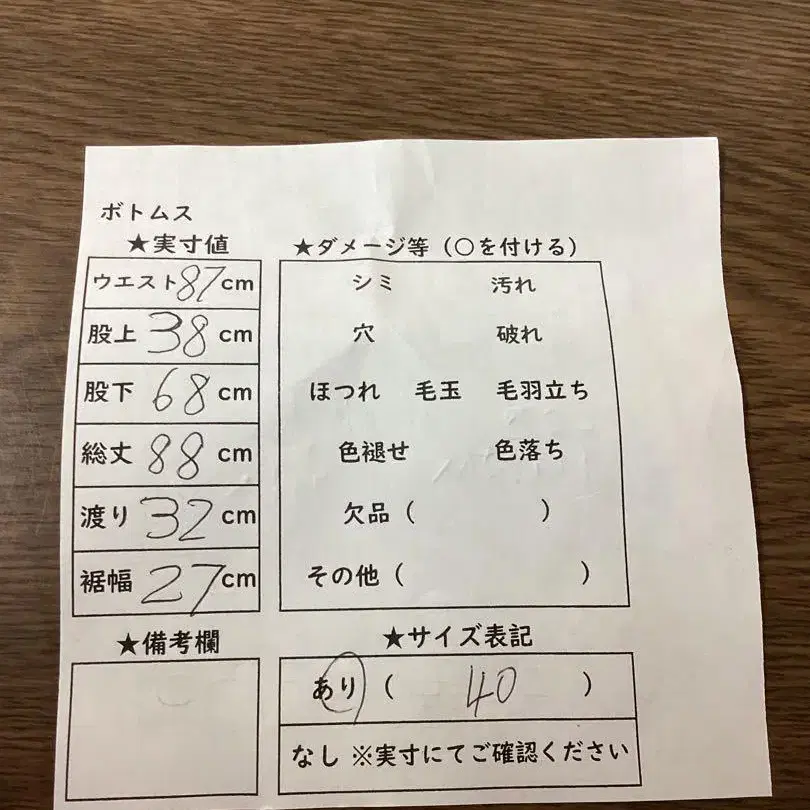 ボトムス
★実寸値
ウエスト87cm
股上 38 cm
股下 68 cm
総丈 88 cm
渡り 32 cm
裾幅 27 cm
★ダメージ等（○を付ける）
シミ 汚れ
穴 破れ
ほつれ 毛玉 毛羽立ち
色褪せ 色落ち
欠品（ ）
その他（ ）
★備考欄
★サイズ表記
あり（ 40 ）
なし ※実寸にてご確認ください